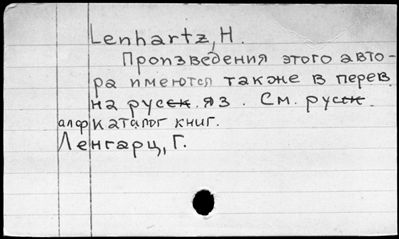 Lenhartz, H.
Произведения этого авто-
ра имеются также в перев.
на русск. яз. См. русск.
алф каталог книг.
Ленгарц, Г.